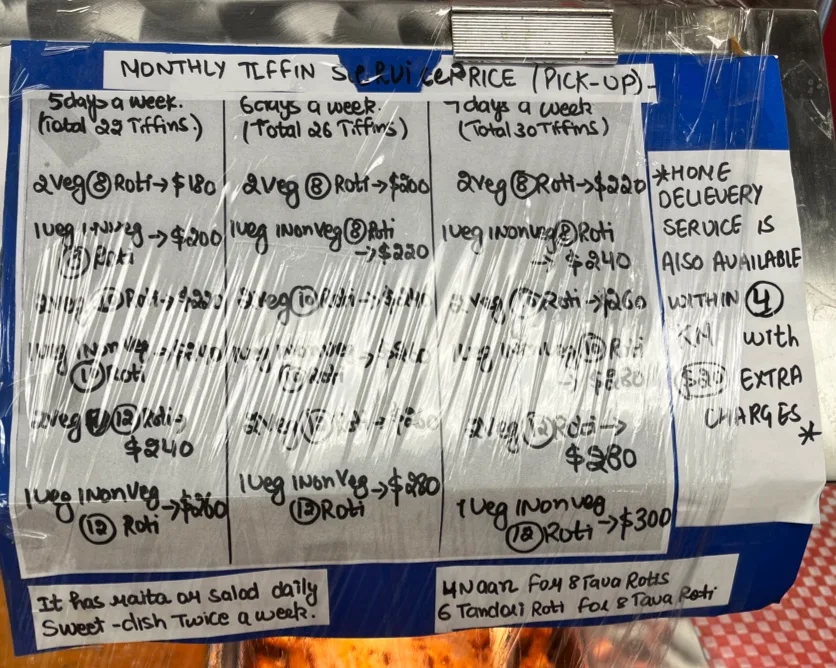 MONTHLY TIFFIN SERVICE PRICE (PICK-UP)-
5days a week.
(Total 22 Tiffins.)
2Veg (8) Roti→$180
1Veg 1NVeg →$200
Roti
2Veg (10) Roti→$220
1Veg 1NonVeg →$240
(10) Roti
2Veg (12) Roti→
$240
1Veg 1NonVeg →$260
(12) Roti
6days a week.
(Total 26 Tiffins)
2Veg (8) Roti→$200
1Veg 1NonVeg (8) Roti
→$220
2Veg (10) Roti→$240
1Veg 1NonVeg →$260
(10) Roti
2Veg (12) Roti→$260
1Veg 1NonVeg →$280
(12) Roti
7days a week
(Total 30 Tiffins)
2Veg (8) Roti→$220
1Veg 1NonVeg (8) Roti
→ $240
2Veg (10) Roti→$260
1Veg 1NonVeg (10) Roti
→ $280
2Veg (12) Roti→
$280
1Veg 1NonVeg
(12) Roti→$300
*HOME
DELIEVERY
SERVICE IS
ALSO AVAILABLE
WITHIN (4)
KM with
($20) EXTRA
CHARGES*
It has raita or salad daily
Sweet-dish Twice a week.
4Naan for 8 Tava Rotis
6 Tandori Roti for 8 Tava Roti